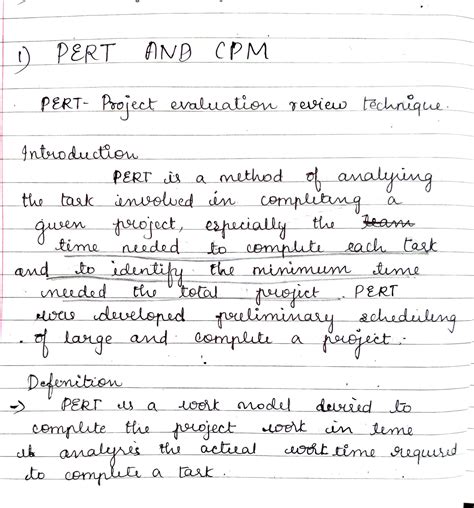 1) PERT AND CPM
PERT- Project evaluation review technique.
Introduction
PERT is a method of analysing
the task involved in completing a
given project, especially the team
time needed to complete each task
and to identify the minimum time
needed the total project. PERT
was developed preliminary scheduling
of large and complete a project.
Defenition
-> PERT is a work model devised to
complete the project work in time
it analysis the actual work time required
to complete a task.